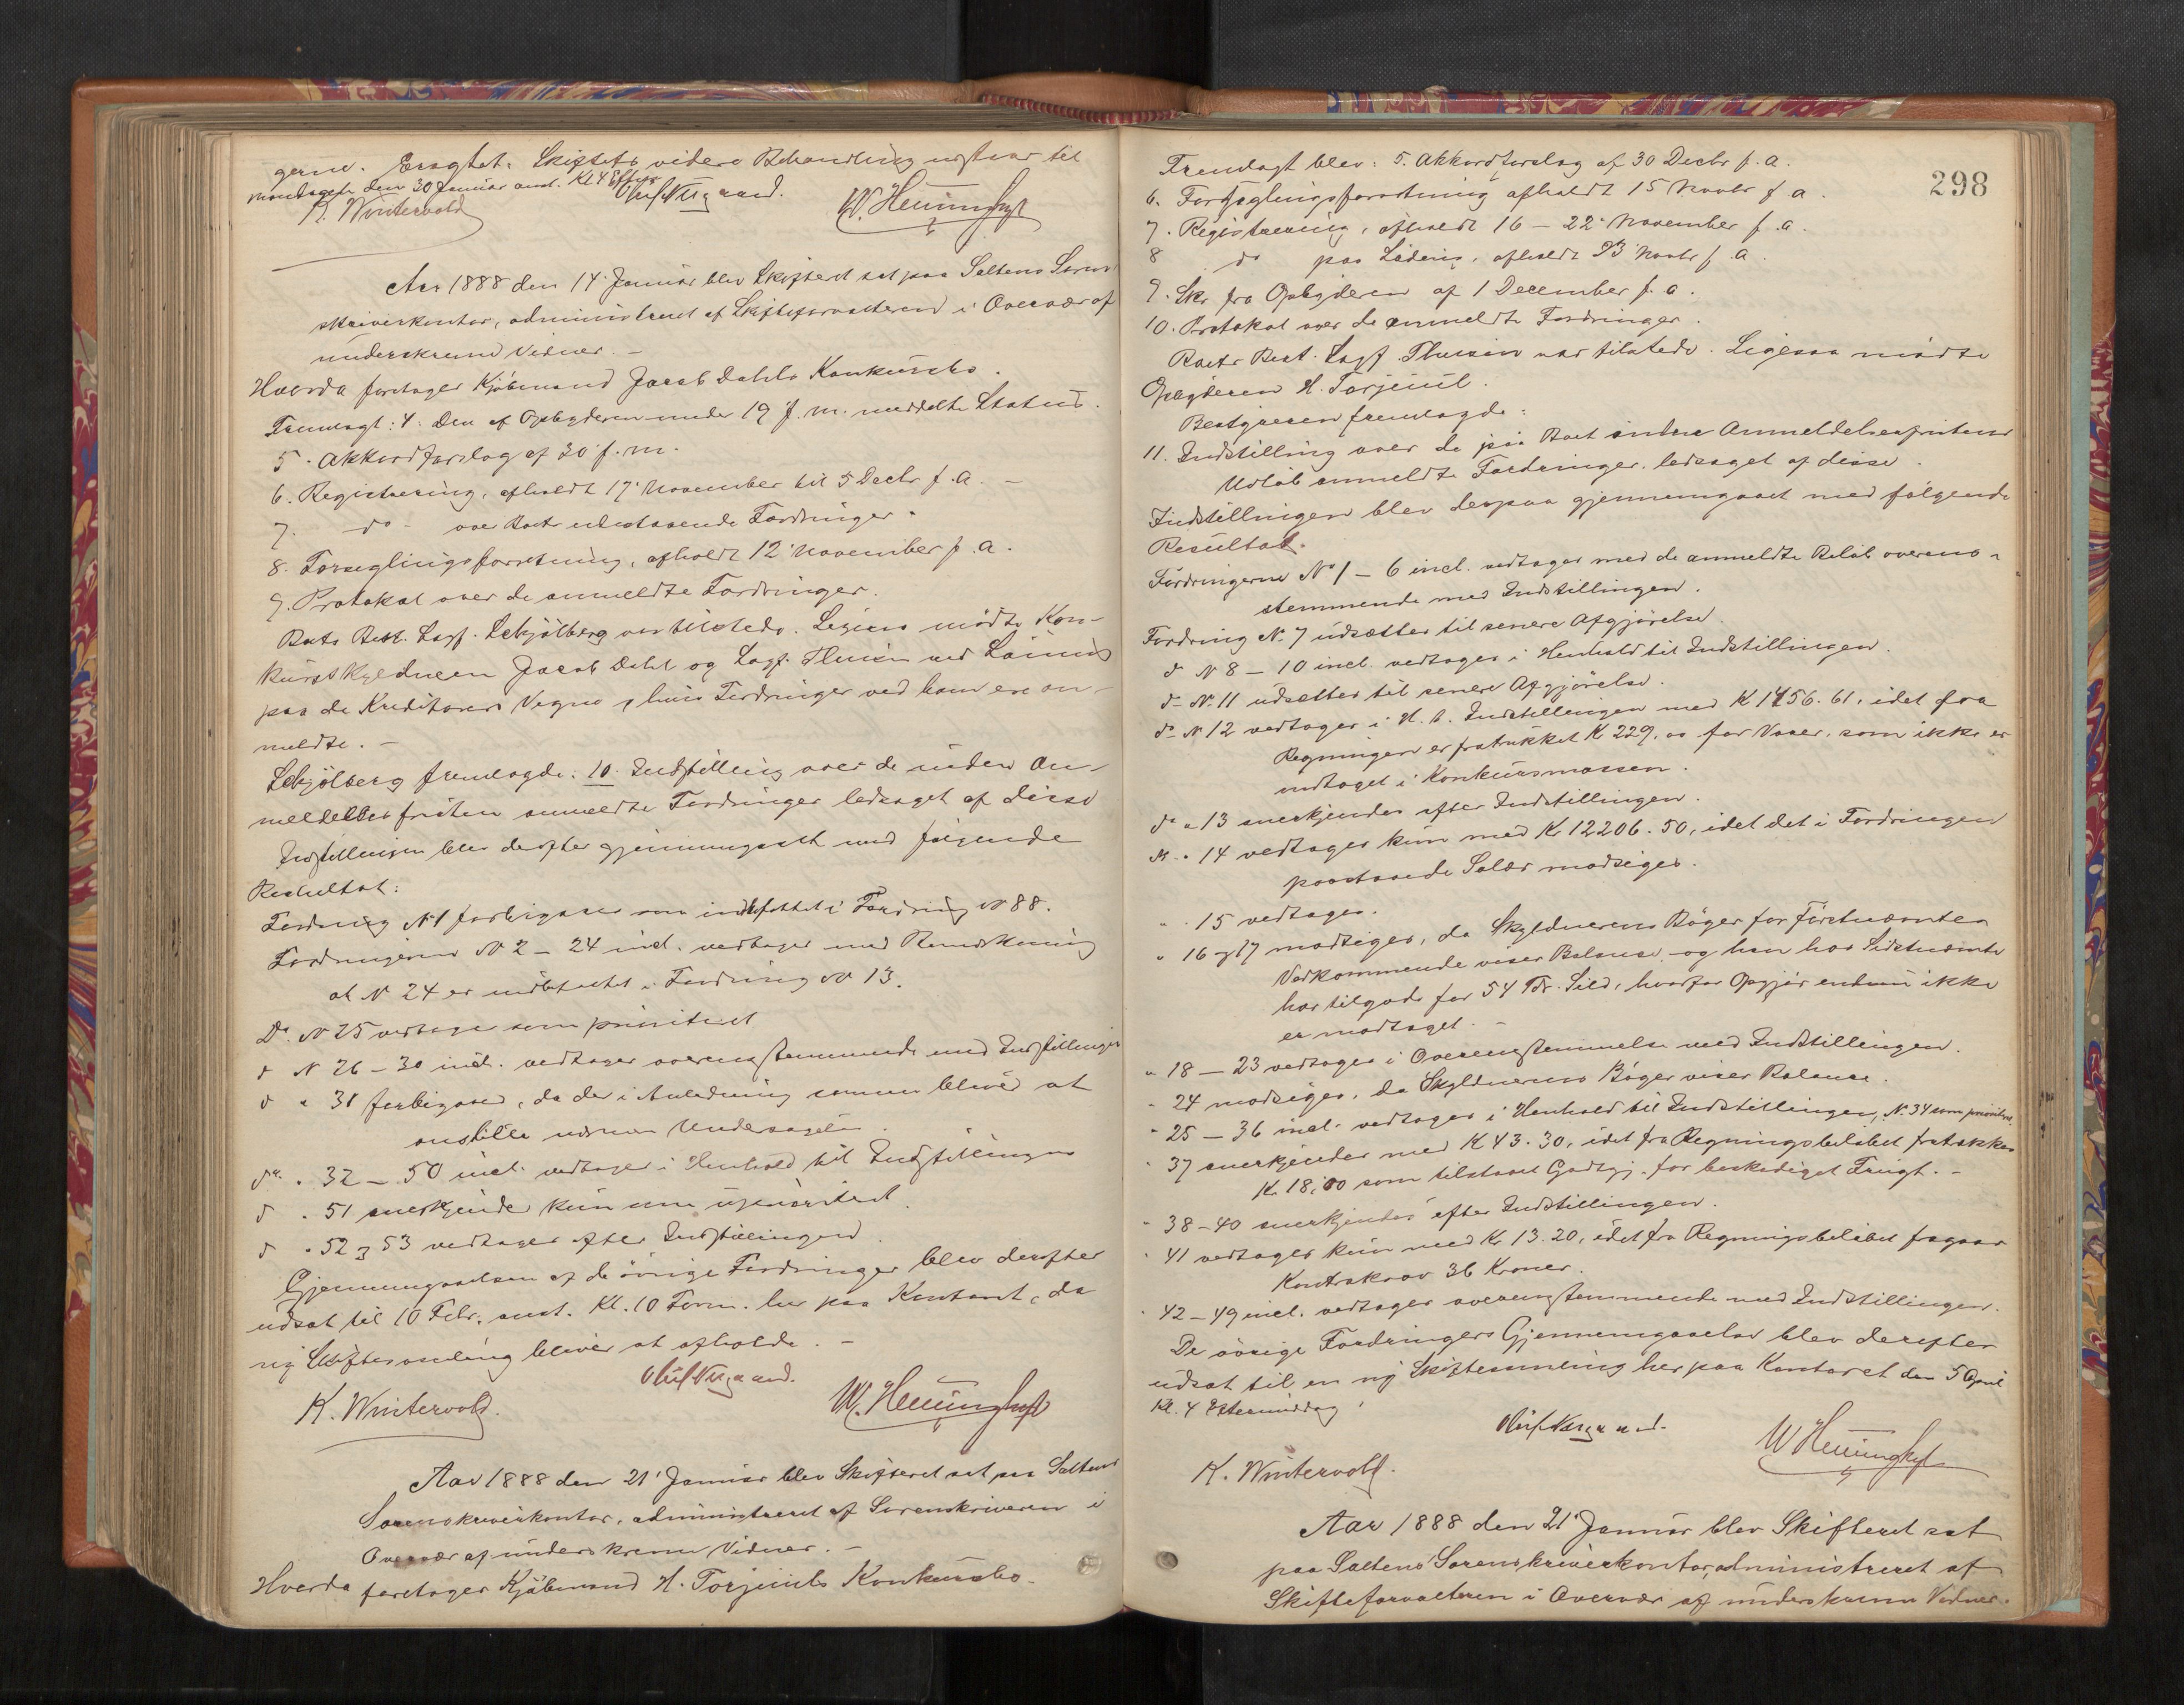 gerne. Eragtet: Skiftets videre Behandling udstaar til
Mandagen den 30 Januar anst. Kl 4 Efterm
K. Wintervold Oluf Vesgaard. W. Henninghuf
Aar 1888 den 14' Januar blev Skifteret sat paa Saltens Soren-
skriverkontor, administreret af Skifteforvalteren i Overvær af
underskrevne Vidner. –
Hvorda foretoges Kjøbmand Jacob Dahls Konkursbo.
Fremlagt: 4. Den af Opbyderen under 19 f. m. meddelte Status.
5. Akkordforslag af 30 f. m.
6. Registrering, afholdt 17' November til 5 Decbr f. A. –
7. do – over Boets udestaaende Fordringer.
8. Forseglingsforretning, afholdt 12' November f. A.
9. Protokol over de anmeldte Fordringer.
Boets Best. Sagf. Schjølberg var tilstede. Ligesaa mødte Kon-
kursskyldneren Jacob Dahl og Sagf. Thesen ved
paa de Kreditorers Vegne, hvis Fordringer ved ham ere an-
meldte. –
Schjølberg fremlagde: 10. Indstilling over de inden An-
meldelsesfristen anmeldte Fordringer ledsaget af disse
Indstillingen blev derefter gjennemgaaet med følgende
Resultat:
Fordring N 1 forbigaaes som indbefattet i Fordring N 88.
Fordringerne N 2 – 24 incl. vedtages med Bemærkning
at N 24 er indbefattet i Fordring N 13.
Do. N 25 vedtages som prioriteret
d N 26 – 30 incl. vedtages overensstemmende med Indstillingen
d " 31 forbigaaes, da der i Anledning sammen bliver at
anstille nærmere Undersøgelse.
do. " 32 – 50 incl. vedtages i Henhold til Indstillingen
d " 51 anerkjendes kun som uprioriteret.
d " 52 og 53 vedtages efter Indstillingen.
Gjennemgaaelsen af de øvrige Fordringer blev derefter
udsat til 10 Febr. anst. Kl. 10 Form. her paa Kontoret, da
ny Skiftesamling bliver at afholde. –
K. Wintervold. Oluf Vesgaard. W. Henninghuf
Aar 1888 den 21' Januar blev Skifteret sat paa Saltens
Sorenskriverkontor, administreret af Sorenskriveren i
Overvær af underskrevne Vidner. –
Hvorda foretoges Kjøbmand H. Torjeuls Konkursbo.
298
Fremlagt blev: 5. Akkordforslag af 30 Decbr f. A.
6. Forseglingsforretning afholdt 15 Novbr f. A.
7. Registrering, afholdt 16 – 22' November f. A.
8 do paa Løding, afholdt 23 Novbr f. A.
9. Skr. fra Opbyderen af 1 December f. A.
10. Protokol over de anmeldte Fordringer.
Boets Best. Sagf. Thesen var tilstede. Ligesaa mødte
Opbyderen H. Torjeul.
Bestyreren fremlagde:
11. Indstilling over de paa Boet inden Anmeldelsesfristens
Udløb anmeldte Fordringer, ledsaget af disse.
Indstillingen blev derpaa gjennemgaaet med følgende
Resultat.
Fordringerne No 1 – 6 incl. vedtages med de anmeldte Beløb overens-
stemmende med Indstillingen.
Fordring N. 7 udsættes til senere Afgjørelse.
d N 8 – 10 incl. vedtages i Henhold til Indstillingen.
d N. 11 udsættes til senere Afgjørelse.
do N 12 vedtages i H. t. Indstillingen med K 1456.61, idet fra
Regningen er fratrukket K 229,00 for Varer, som ikke er
indtaget i Konkursmassen.
do " 13 anerkjendes efter Indstillingen.
N. " 14 vedtages kun med Kr 12206.50, idet det i Fordringen
paastaaede Salær modsiges.
" " 15 vedtages.
" 16 og 17 modsiges, da Skyldnerens Bøger for Førstnævntes
Vedkommende viser Balance, og han hos Sidstnævnte
har tilgode for 54 Tdr. Sild, hvorfor Opgjør endnu ikke
er modtaget. –
" 18 – 23 vedtages i Overensstemmelse med Indstillingen.
" 24 modsiges, da Skyldnerens Bøger viser Balance.
" 25 – 36 incl. vedtages i Henhold til Indstillingen, N. 34 som prioriteret.
" 37 anerkjendes med K 43.30, idet fra Regningsbeløbet fratrækkes
K. 18,00 som tilstaaet Godtgj. for beskadiget Frugt. –
" 38 – 40 anerkjendes efter Indstillingen.
" 41 vedtages kun med Kr. 13.20, idet fra Regningsbeløbet fragaar
Kontrakrav 36 Kroner.
" 42 – 49 incl. vedtages overensstemmende med Indstillingen.
De øvrige Fordringers Gjennemgaaelse blev derefter
udsat til en ny Skiftesamling her paa Kontoret den 5 April
Kl. 4 Eftermiddag.
K. Wintervold. Oluf Vesgaard. W Henninghuf
Aar 1888 den 21' Januar blev Skifteret sat
paa Saltens Sorenskriverkontor, administreret af
Skifteforvalteren i Overvær af underskrevne Vidner.